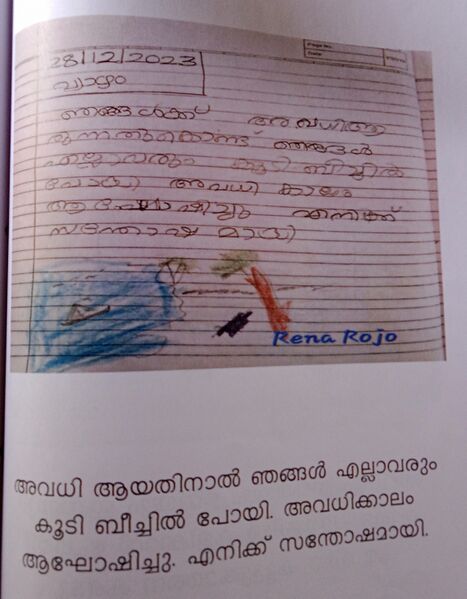 Page No.
Date
28/12/2023
വ്യാഴം
ഞങ്ങൾക്ക് അവധിആ
യുന്നതുകൊണ്ട് ഞങ്ങൾ
എല്ലാവരും കൂടി ബീച്ചിൽ
പോയി അവധി കാലം
ആഘോഷിച്ചു എനിക്ക്
സന്തോഷ മായി
Rena Rojo
അവധി ആയതിനാൽ ഞങ്ങൾ എല്ലാവരും
കൂടി ബീച്ചിൽ പോയി. അവധിക്കാലം
ആഘോഷിച്ചു. എനിക്ക് സന്തോഷമായി.